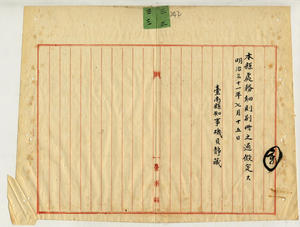 本縣處務細則別冊之通假定ス
明治三十一年七月十五日
臺南縣知事磯貝靜藏
臺南縣